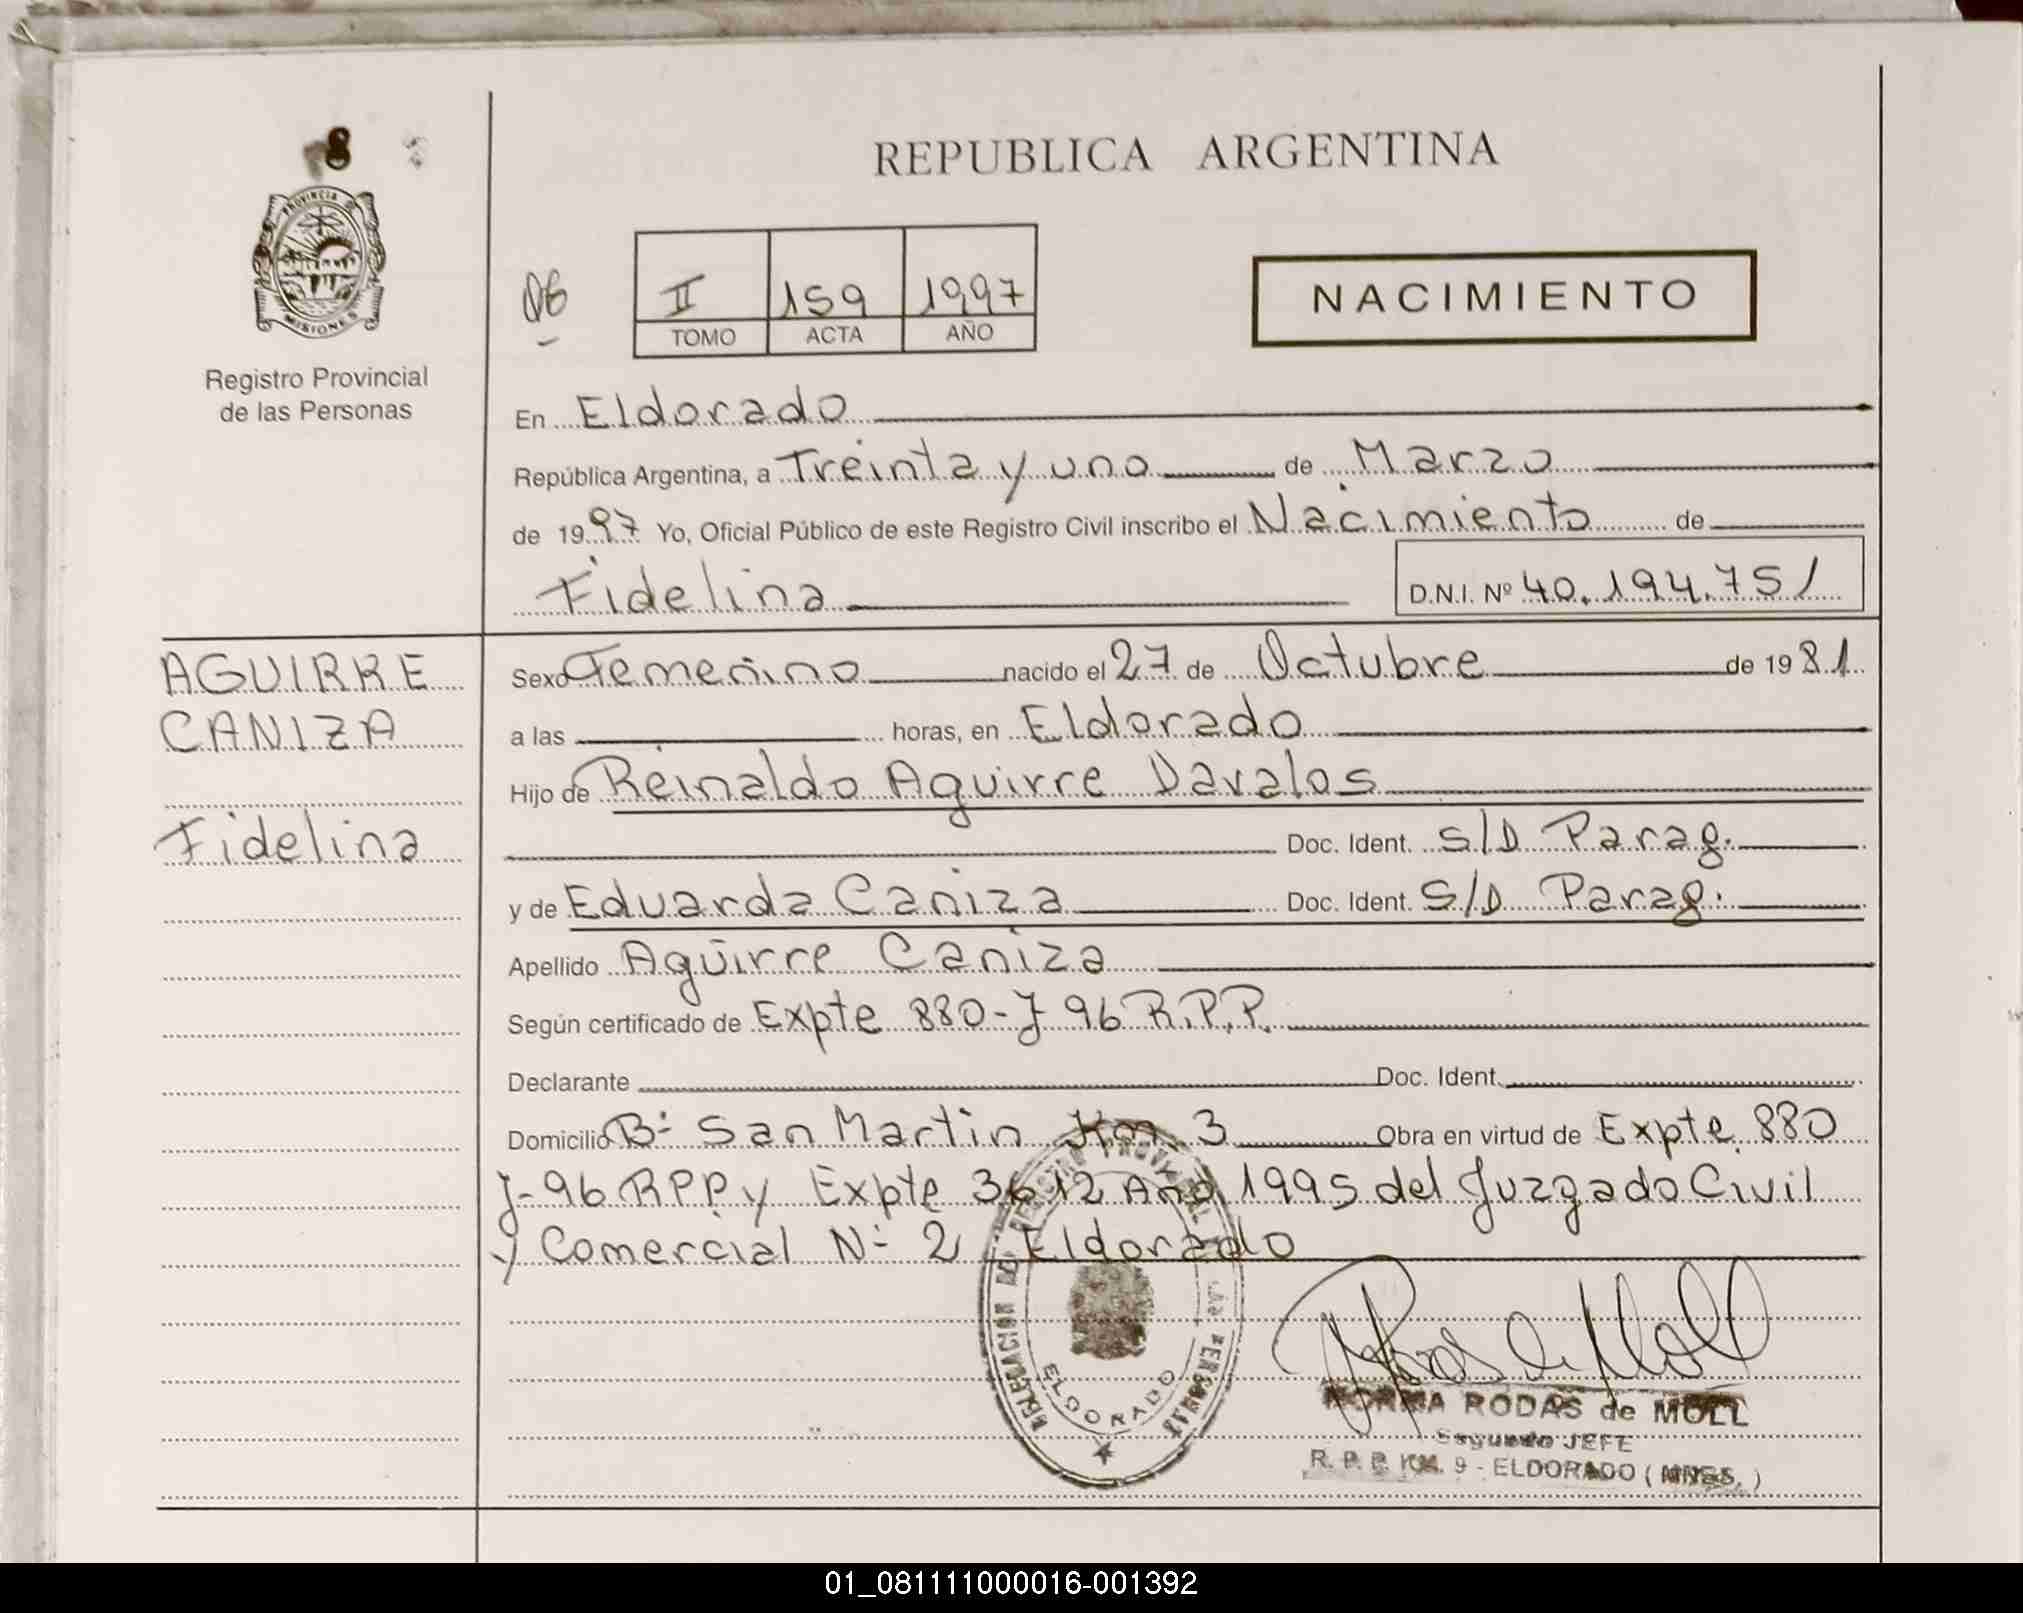 8
PROVINCIA DE
MISIONES
Registro Provincial
de las Personas
REPUBLICA ARGENTINA
06
II 159 1997
TOMO ACTA AÑO
NACIMIENTO
En Eldorado
República Argentina, a Treinta y uno de Marzo
de 1997 Yo, Oficial Público de este Registro Civil inscribo el Nacimiento de
Fidelina D.N.I. Nº 40.194.751
AGUIRRE
CANIZA
Fidelina
Sexo Femenino nacido el 27 de Octubre de 1981
a las horas, en Eldorado
Hijo de Reinaldo Aguirre Davalos
Doc. Ident. S/D Parag.
y de Eduarda Caniza Doc. Ident. S/D Parag.
Apellido Aguirre Caniza
Según certificado de Expte 880-J 96 R.P.P.
Declarante Doc. Ident.
Domicilio B= San Martin Km 3 Obra en virtud de Expte 880
J-96 RPP y Expte 3612 Año 1995 del Juzgado Civil
y Comercial N= 2 Eldorado
DELEGACION DEL REGISTRO PROVINCIAL DE LAS PERSONAS
ELDORADO
Rodas de Moll
NORMA RODAS de MOLL
Segundo JEFE
R. P. P. KM. 9 - ELDORADO ( MNES. )
01_081111000016-001392